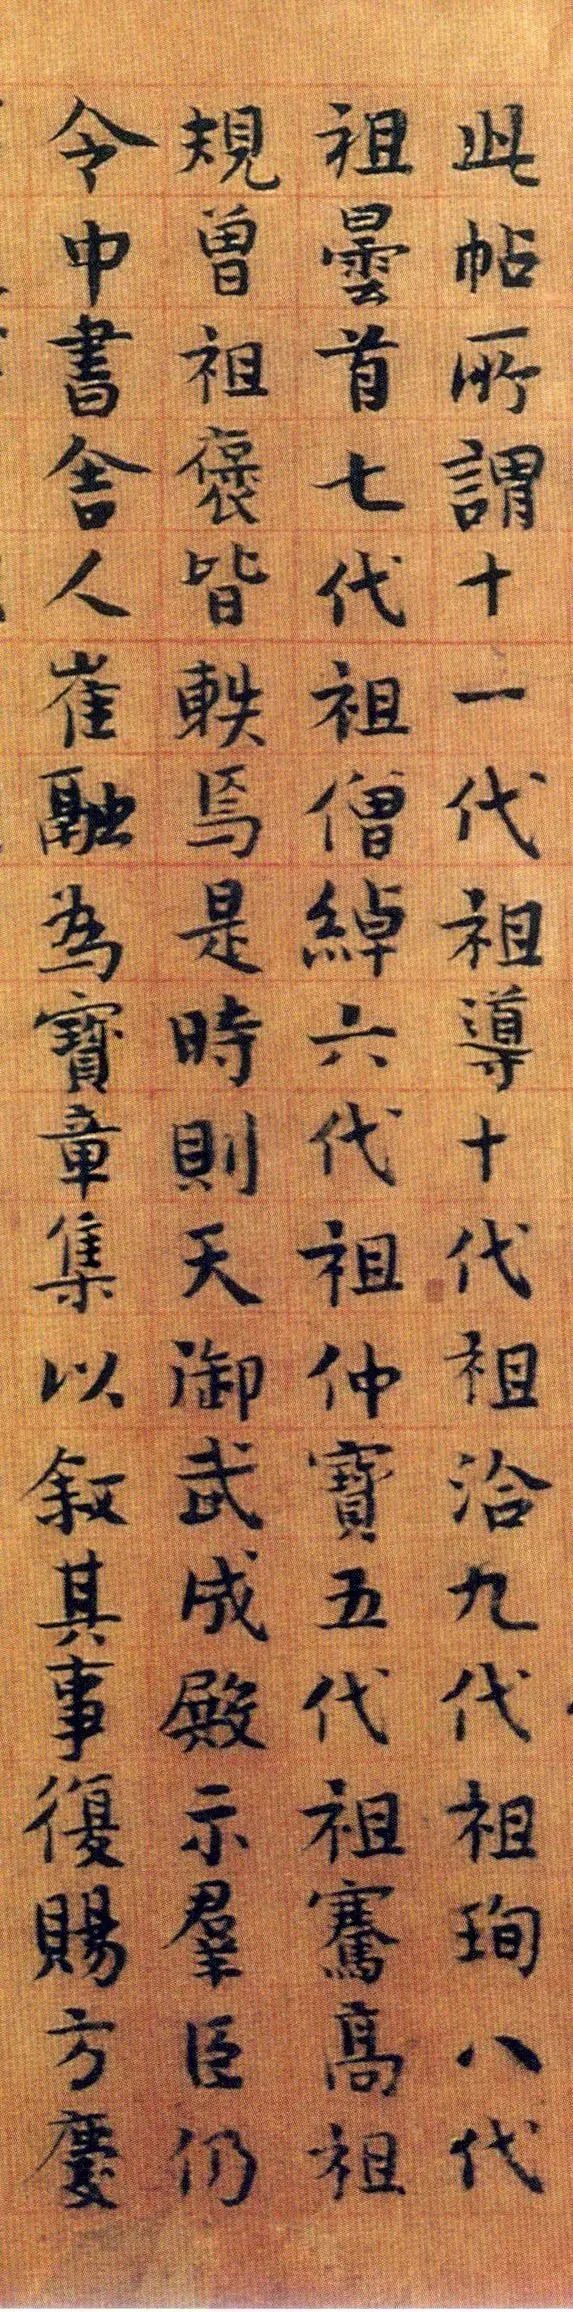 此帖所謂十一代祖導十代祖洽九代祖珣八代
祖曇首七代祖僧綽六代祖仲寶五代祖騫高祖
規曾祖褒皆軼焉是時則天御武成殿示羣臣仍
令中書舍人崔融為寶章集以叙其事復賜方慶